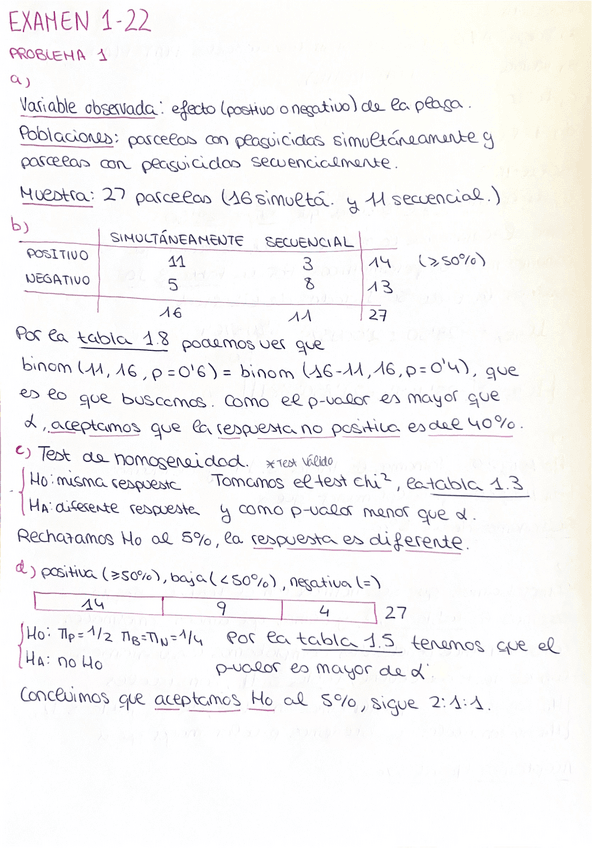 EXAMEN 1-22
PROBLEMA 1
a)
Variable observada: efecto (positivo o negativo) de la plaga.
Poblaciones: parcelas con plaguicidas simultáneamente y
parcelas con plaguicidas secuencialmente.
Muestra: 27 parcelas (16 simultá. y 11 secuencial.)
b)
SIMULTÁNEAMENTE SECUENCIAL
POSITIVO 11 3 14 (≥50%)
NEGATIVO 5 8 13
16 11 27
Por la tabla 1.8 podemos ver que
binom (11, 16, p=0'6) = binom (16-11, 16, p=0'4), que
es lo que buscamos. Como el p-valor es mayor que
α, aceptamos que la respuesta no positiva es del 40%.
c) Test de homogeneidad. *Test válido
H0: misma respuesta Tomamos el test chi², la tabla 1.3
HA: diferente respuesta y como p-valor menor que α.
Rechazamos H0 al 5%, la respuesta es diferente.
d) positiva (≥50%), baja (<50%), negativa (=)
14 9 4 27
H0: πP=1/2 πB=πN=1/4 Por la tabla 1.5 tenemos que el
HA: no H0 p-valor es mayor de α
Concluimos que aceptamos H0 al 5%, sigue 2:1:1.